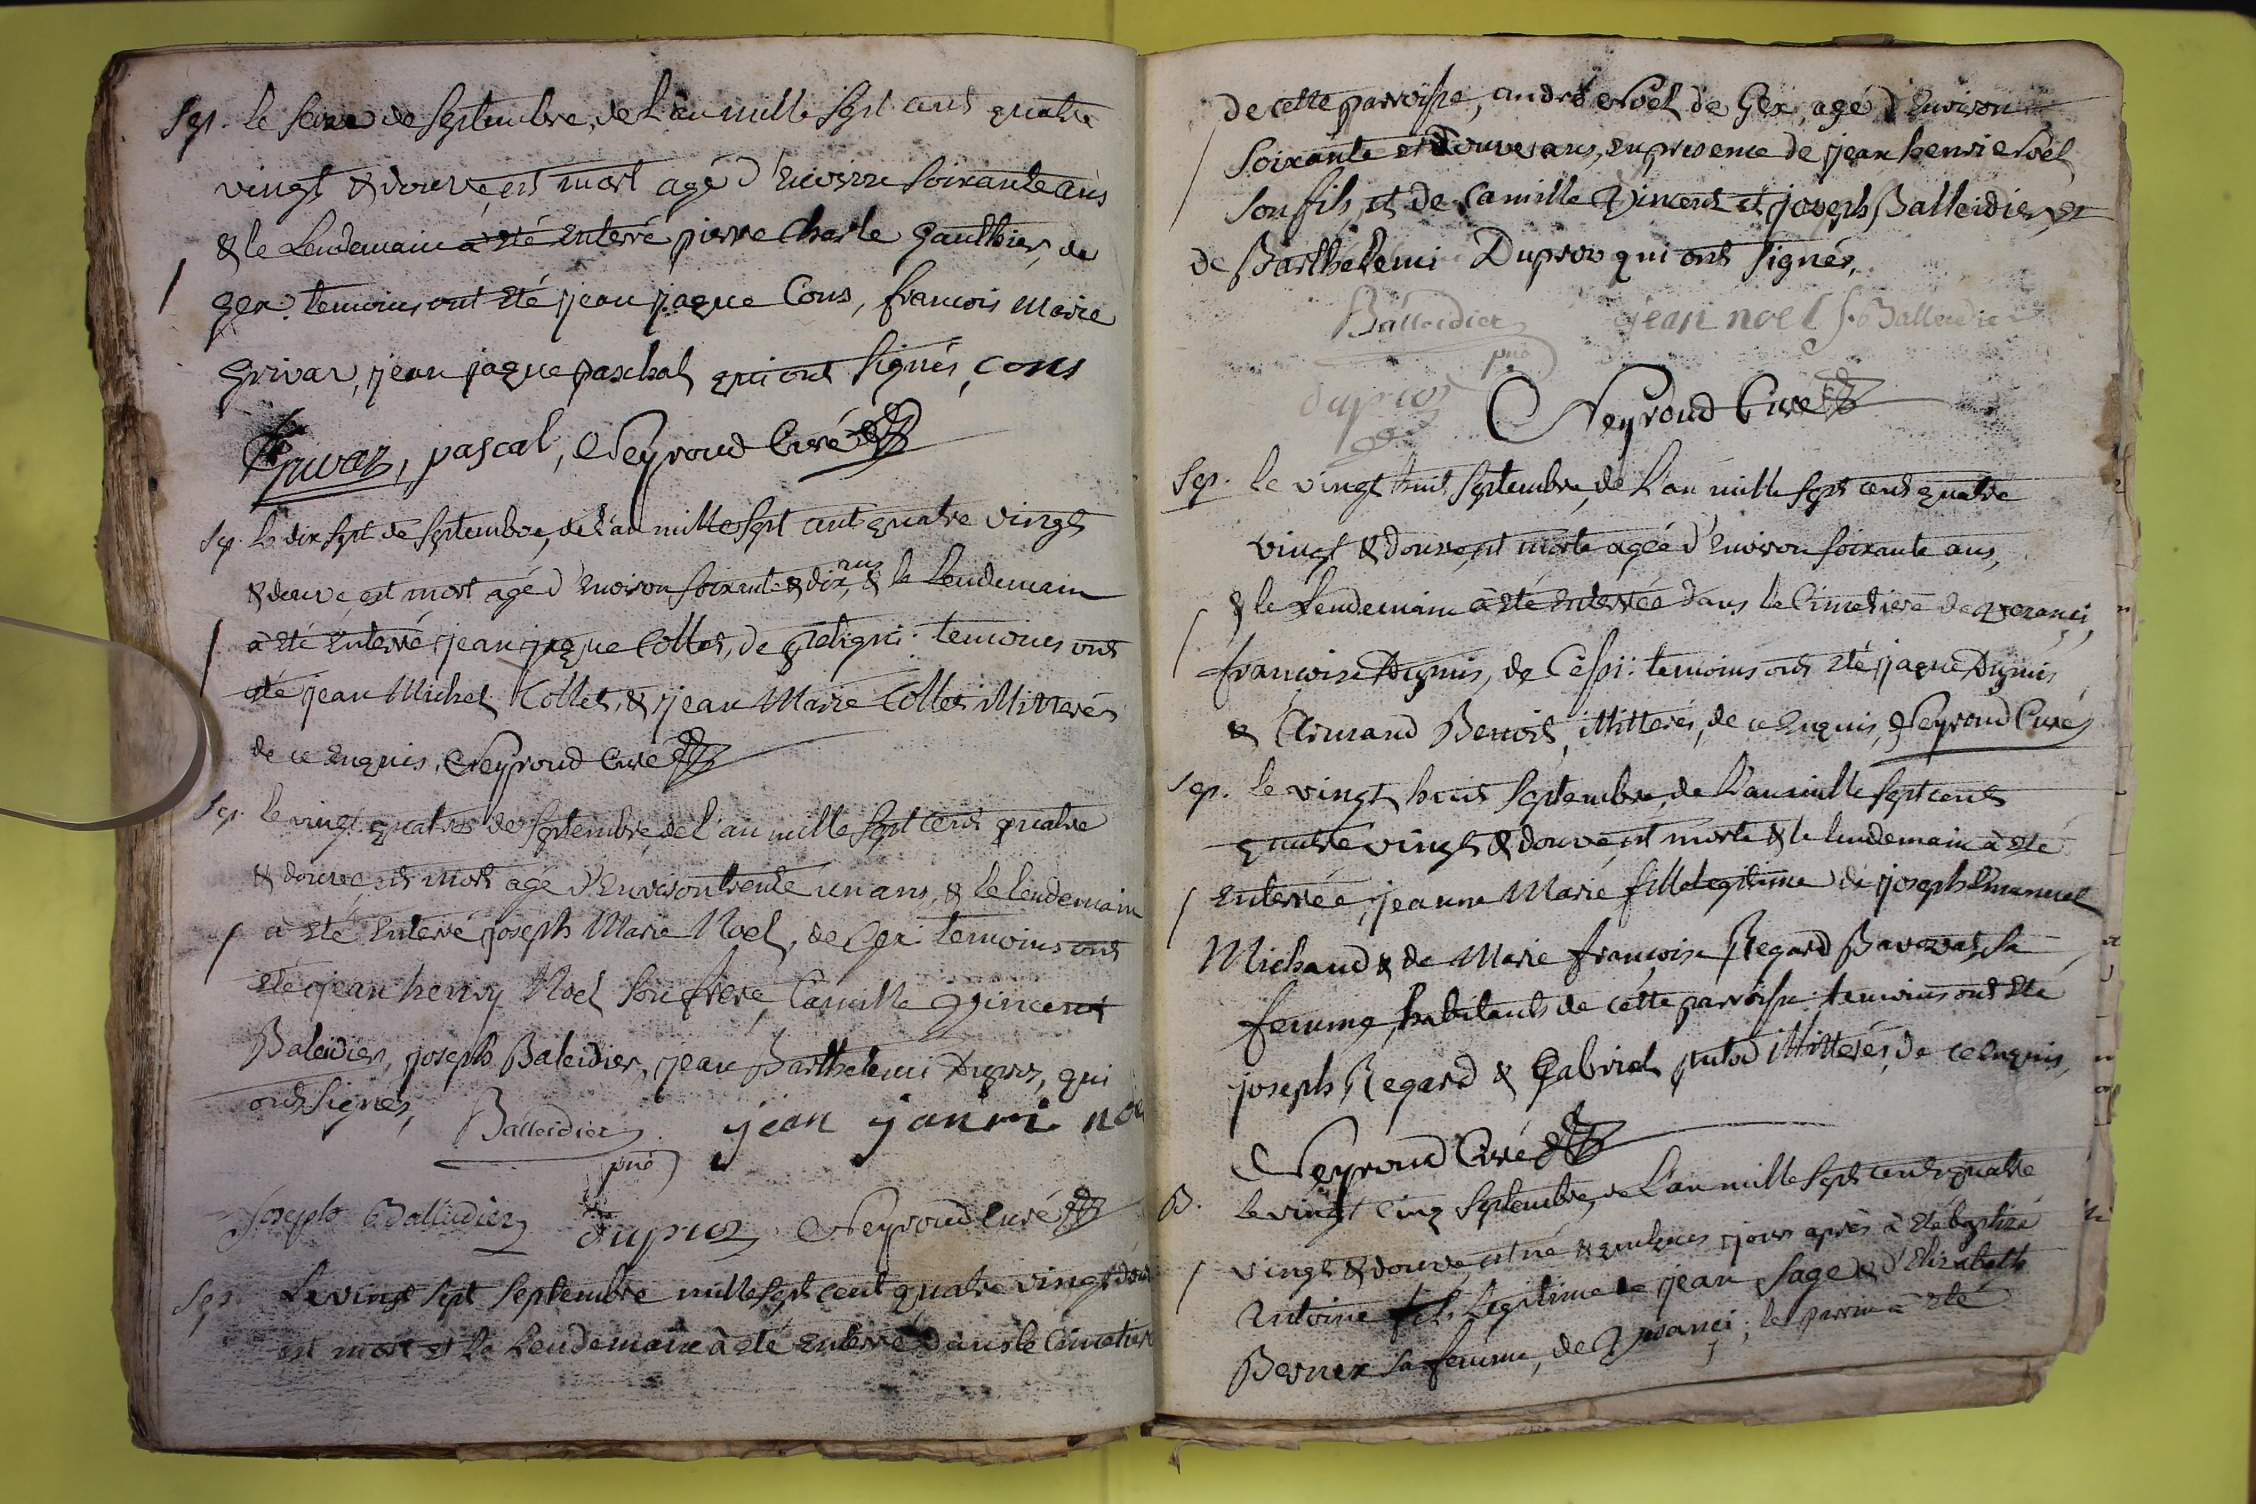 Sep. le seize de Septembre, de L'an mille Sept cent quatre
vingt & douze, est mort agé d'Environ soixante ans
& le Lendemain à été Enterré pierre Charle Gaulthier, de
Gex. temoins ont été jean jaque Cons, francois Marie
Grivaz, jean jaque paschal qui ont Signés, Cons
Grivaz, pascal, Neyroud Curé
Sep. le dix Sept de Septembre, de L'an mille Sept cent quatre vingt
& douze est mort agé d'Environ soixante & dix ans, & le Lendemain
à été Enterré jean jaque Collet, de geligni: temoins ont
été jean Michel Collet, & jean Marie Collet illitterés
de ce Enquis, Neyroud Curé
Sep. le vingt quatre de Septembre, de L'an mille Sept cent quatre
& douze est mort agé d'Environ trente un ans, & le lendemain
à été Enterré joseph Marie Noel, de Gex: temoins ont
été jean henry Noel son frere, Camille Vincent
Baleidier, joseph Baleidier, jean Barthelemi Dupros, qui
ont Signés,
Balleidier jean janrri noe
pué
joseph Balleidier dupuoz Neyroud Curé
Sep. Le vingt sept Septembre mille sept cent quatre vingt douze
est mort et le Lendemain à été Enterré dans le Cimetiere
de cette parroisse, andré Noël de Gex, agé d'Environ
soixante et douze ans, en presence de jean henri Noël
son fils, et de Camille Vincent et joseph Balleidier, et
de Barthelemi Dupros qui ont signés,
Balleidier jean noel J. Balleidier
pué
dupuoz
Neyroud Curé
Sep. le vingt huit Septembre, de L'an mille Sept cent quatre
vingt & douze, est morte agée d'Environ soixante ans,
& le Lendemain à été Enterrée dans le Cimetiere de
francoise Dupuis, de Cessi: temoins ont été jaque Dupuis
& Armand Benoit, illitterés, de ce Enquis, Neyroud Curé
Sep. le vingt huit Septembre, de L'an mille sept cent
quatre vingt & douze, est morte & le lendemain à été
Enterrée, jeanne Marie fille legitime de joseph Emanuel
Michaud & de Marie françoise Regard sa
femme, habitants de cette parroisse: temoins ont été
joseph Regard & Gabriel illitterés, de ce Enquis,
Neyroud Curé
B. le vingt cinq Septembre, de L'an mille Sept cent quatre
vingt & douze, est né & quelques jours après à été baptisé
Antoine fils Legitime de jean Sage & d'Elizabeth
Bernex sa femme, de; le parrin à été